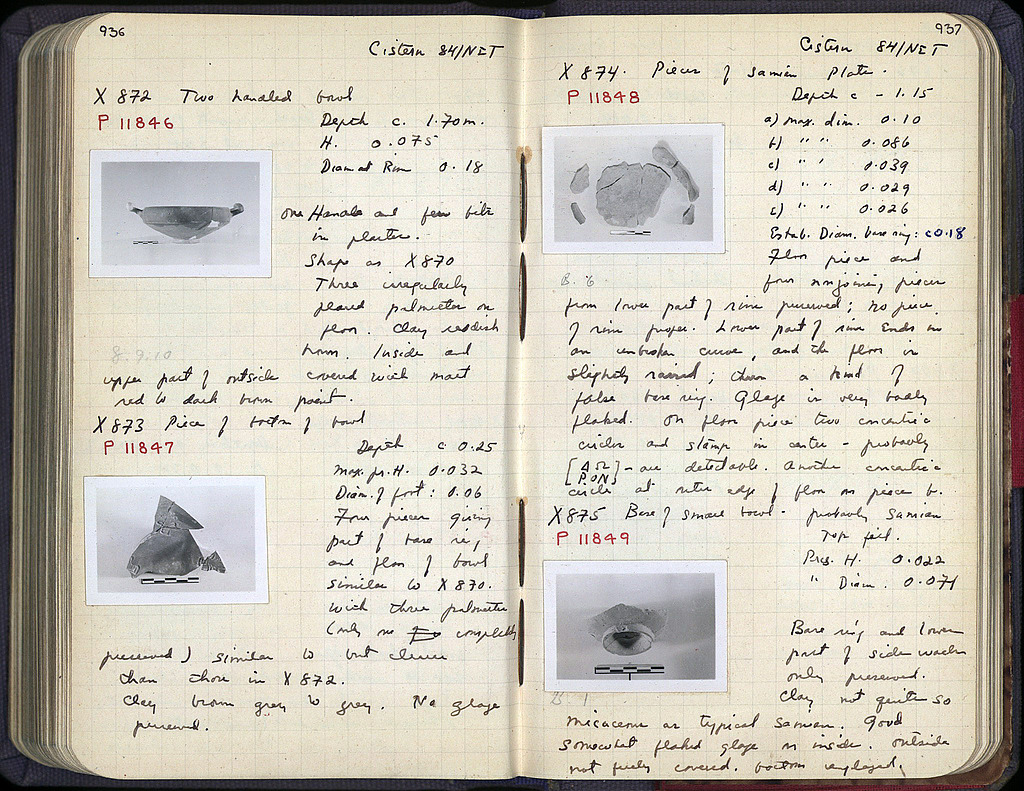 936
Cistern 84/NET
X 872 Two handled bowl
P 11846
Depth c. 1.70m.
H. 0.075
Diam at Rim 0.18
one Handle and few bits
in plaster.
Shape as X 870
Three irregularly
placed palmettes on
floor. Clay reddish
8.9.10
brown. Inside and
upper part of outside covered with matt
red to dark brown paint.
X 873 Piece of bottom of bowl
P 11847
Depth c 0.25
Max. pr. H. 0.032
Diam. of foot: 0.06
Four pieces giving
part of base ring
and floor of bowl
similar to X 870.
With three palmettes
(only one completely
preserved) similar to but
than those in X 872.
Clay brown grey to grey. No glaze
preserved.
937
Cistern 84/NET
X 874. Pieces of Samian Plate.
P 11848
Depth c - 1.15
a) max. dim. 0.10
b) " " 0.086
c) " " 0.039
d) " " 0.029
e) " " 0.026
Estab. Diam. base ring: c 0.18
Floor piece and
B. 6
four nonjoining pieces
from lower part of rim preserved; no piece
of rim proper. Lower part of rim ends in
an unbroken curve, and the floor is
slightly raised; thus a kind of
false base ring. Glaze is very badly
flaked. On floor piece two concentric
circles and stamp in center - probably
[ΔΩ
ΡΟΝ] - are detectable. Another concentric
circle at outer edge of floor on piece b.
X 875 Base of small bowl. probably Samian
P 11849
Top fill.
Pres. H. 0.022
" Diam. 0.071
Base ring and lower
part of side walls
only preserved.
B. 1
Clay not quite so
micaceous as typical Samian. Good
somewhat flaked glaze on inside. Outside
not fully covered. bottom unglazed.